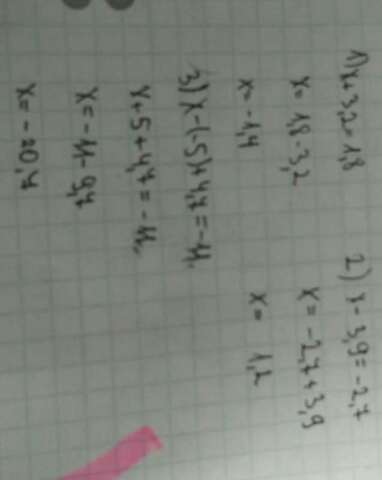 1) x+3,2=1,8
x= 1,8-3,2
x= -1,4
2) x-3,9=-2,7
x= -2,7+3,9
x= 1,2
3) x-(-5)+4,7=-11.
x+5+4,7=-11.
x= -11-9,7
x= -20,7